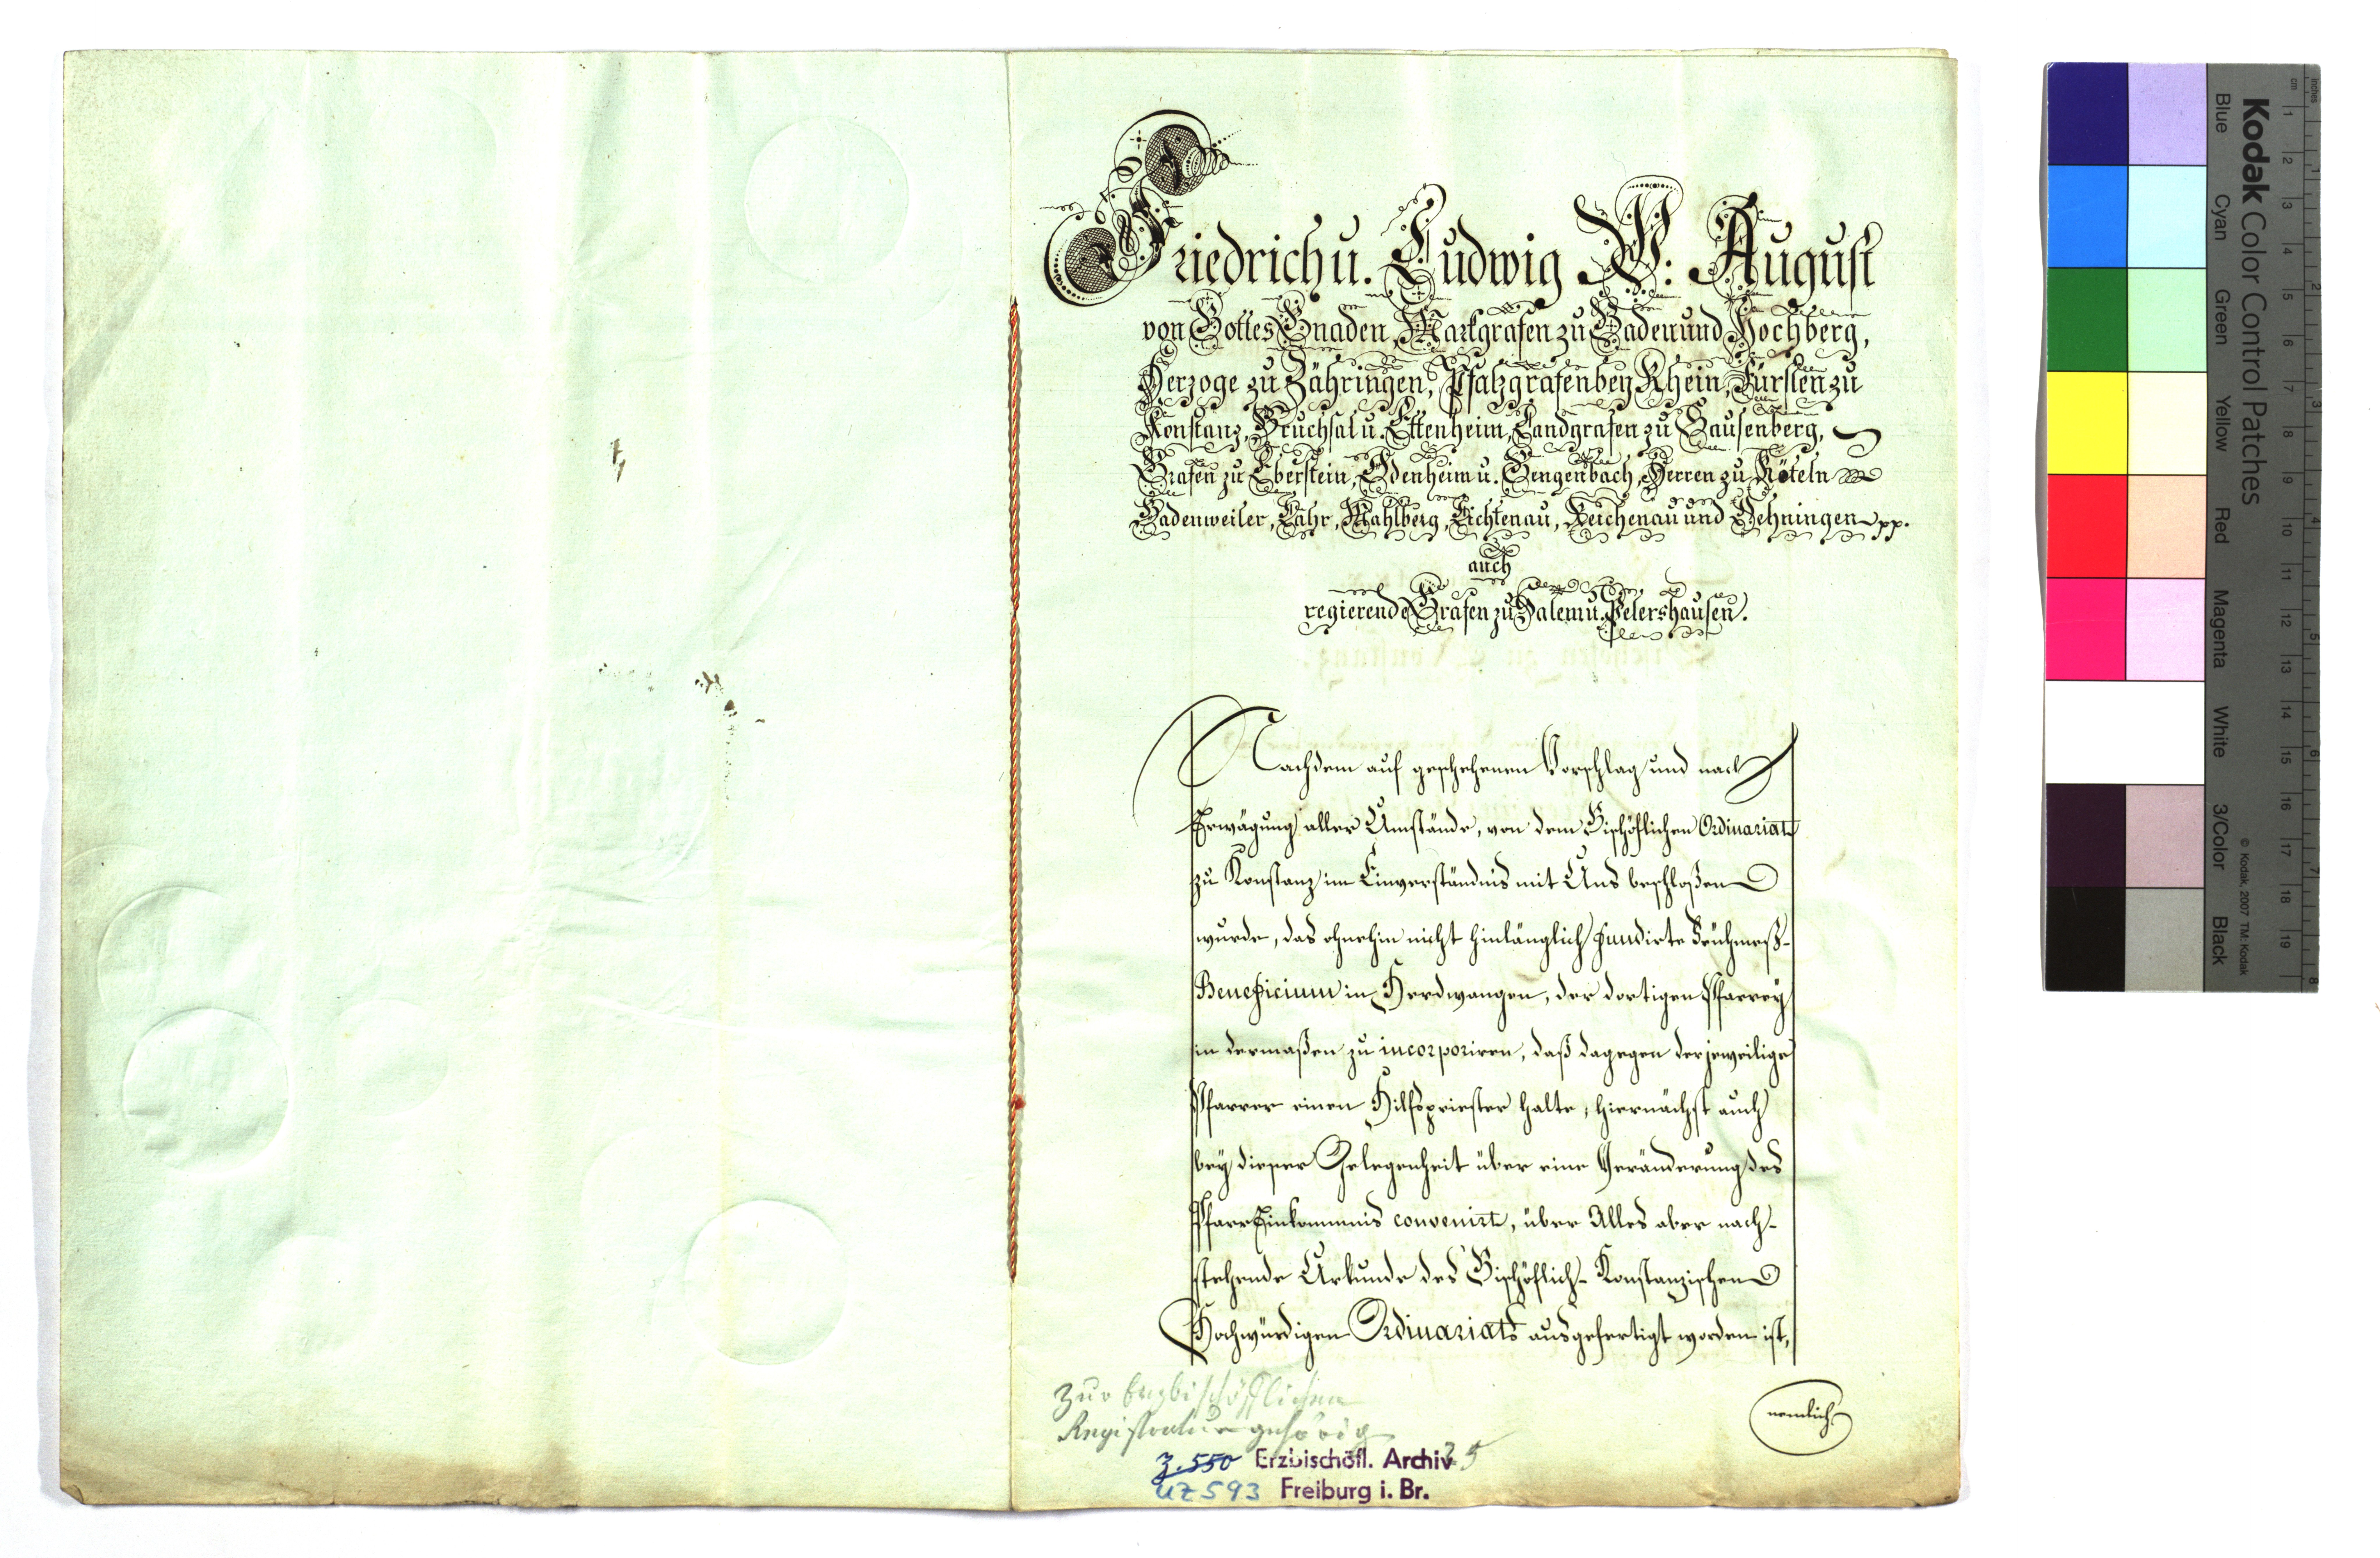 Friedrich u. Ludwig W: August
von Gottes Gnaden, Markgrafen zu Baden und Hochberg,
Herzoge zu Zähringen, Pfalzgrafen bey Rhein, Fürsten zu
Konstanz, Bruchsal u. Ettenheim, Landgrafen zu Sausenberg,
Grafen zu Eberstein, Odenheim u. Gengenbach, Herren zu Röteln
Badenweiler, Lahr, Mahlberg, Lichtenau, Reichenau und Oehningen pp.
auch
regierende Grafen zu Salem u. Petershausen.
Nachdem auf geschehenen Vorschlag und nach
Erwägung aller Umstände, von dem Bischöflichen Ordinariat
zu Konstanz im Einverständnis mit Uns beschloßen
wurde, das ohnehin nicht hinlänglich fundirte Frühmeß-
Beneficium in Herdwangen, der dortigen Pfarrey
in dermaßen zu incorporiren, daß dagegen der jeweilige
Pfarrer einen Hilfspriester halte, hiernächst auch
bey dieser Gelegenheit über eine Veränderung des
Pfarr Einkommnis convenirt, über Alles aber nach-
stehende Urkunde des Bischöflich-Konstanzischen
Hochwürdigen Ordinariats ausgefertigt worden ist,
nemlich
Zur Erzbischöflichen
Registratur gehörig
3.550 Erzbischöfl. Archiv 35
UZ 593 Freiburg i. Br.
Kodak Color Control Patches
Blue Cyan Green Yellow Red Magenta White 3/Color Black
© Kodak, 2007 TM: Kodak
cm 1 2 3 4 5 6 7 8 9 10 11 12 13 14 15 16 17 18 19
inches 1 2 3 4 5 6 7 8